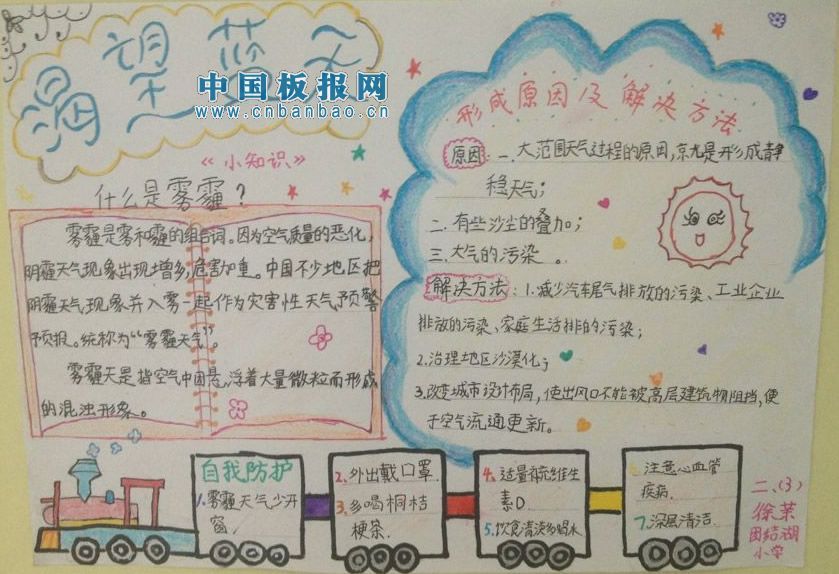 渴望蓝天
中国板报网
www.cnbanbao.cn
《小知识》
什么是雾霾？
雾霾是雾和霾的组合词。因为空气质量的恶化，
阴霾天气现象出现增多，危害加重。中国不少地区把
阴霾天气现象并入雾一起作为灾害性天气预警
预报。统称为“雾霾天气”。
雾霾天是指空气中因悬浮着大量微粒而形成
的混浊形象。
形成原因及解决方法
原因：一、大范围天气过程的原因，就是形成静
稳天气；
二、有些沙尘的叠加；
三、大气的污染。
解决方法：1.减少汽车尾气排放的污染、工业企业
排放的污染、家庭生活排的污染；
2.治理地区沙漠化；
3.改变城市设计布局，使出风口不能被高层建筑物阻挡，便
于空气流通更新。
自我防护
1.雾霾天气少开
窗
2.外出戴口罩
3.多喝桐桔
梗茶.
4.适量补充维生
素D
5.饮食清淡多喝水
6.注意心血管
疾病.
7.深层清洁
二、(3)
徐茉
团结湖
小学